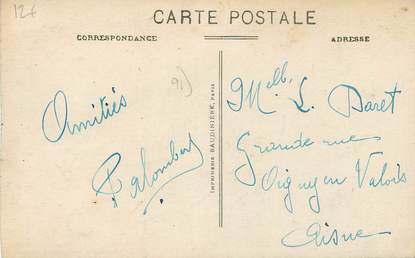 12f
CARTE POSTALE
CORRESPONDANCE
ADRESSE
91)
Amitiés
IMPRIMERIE BAUDINIÈRE, PARIS
Melle L. Daret
Grande rue
Oigny en Valois
Aisne